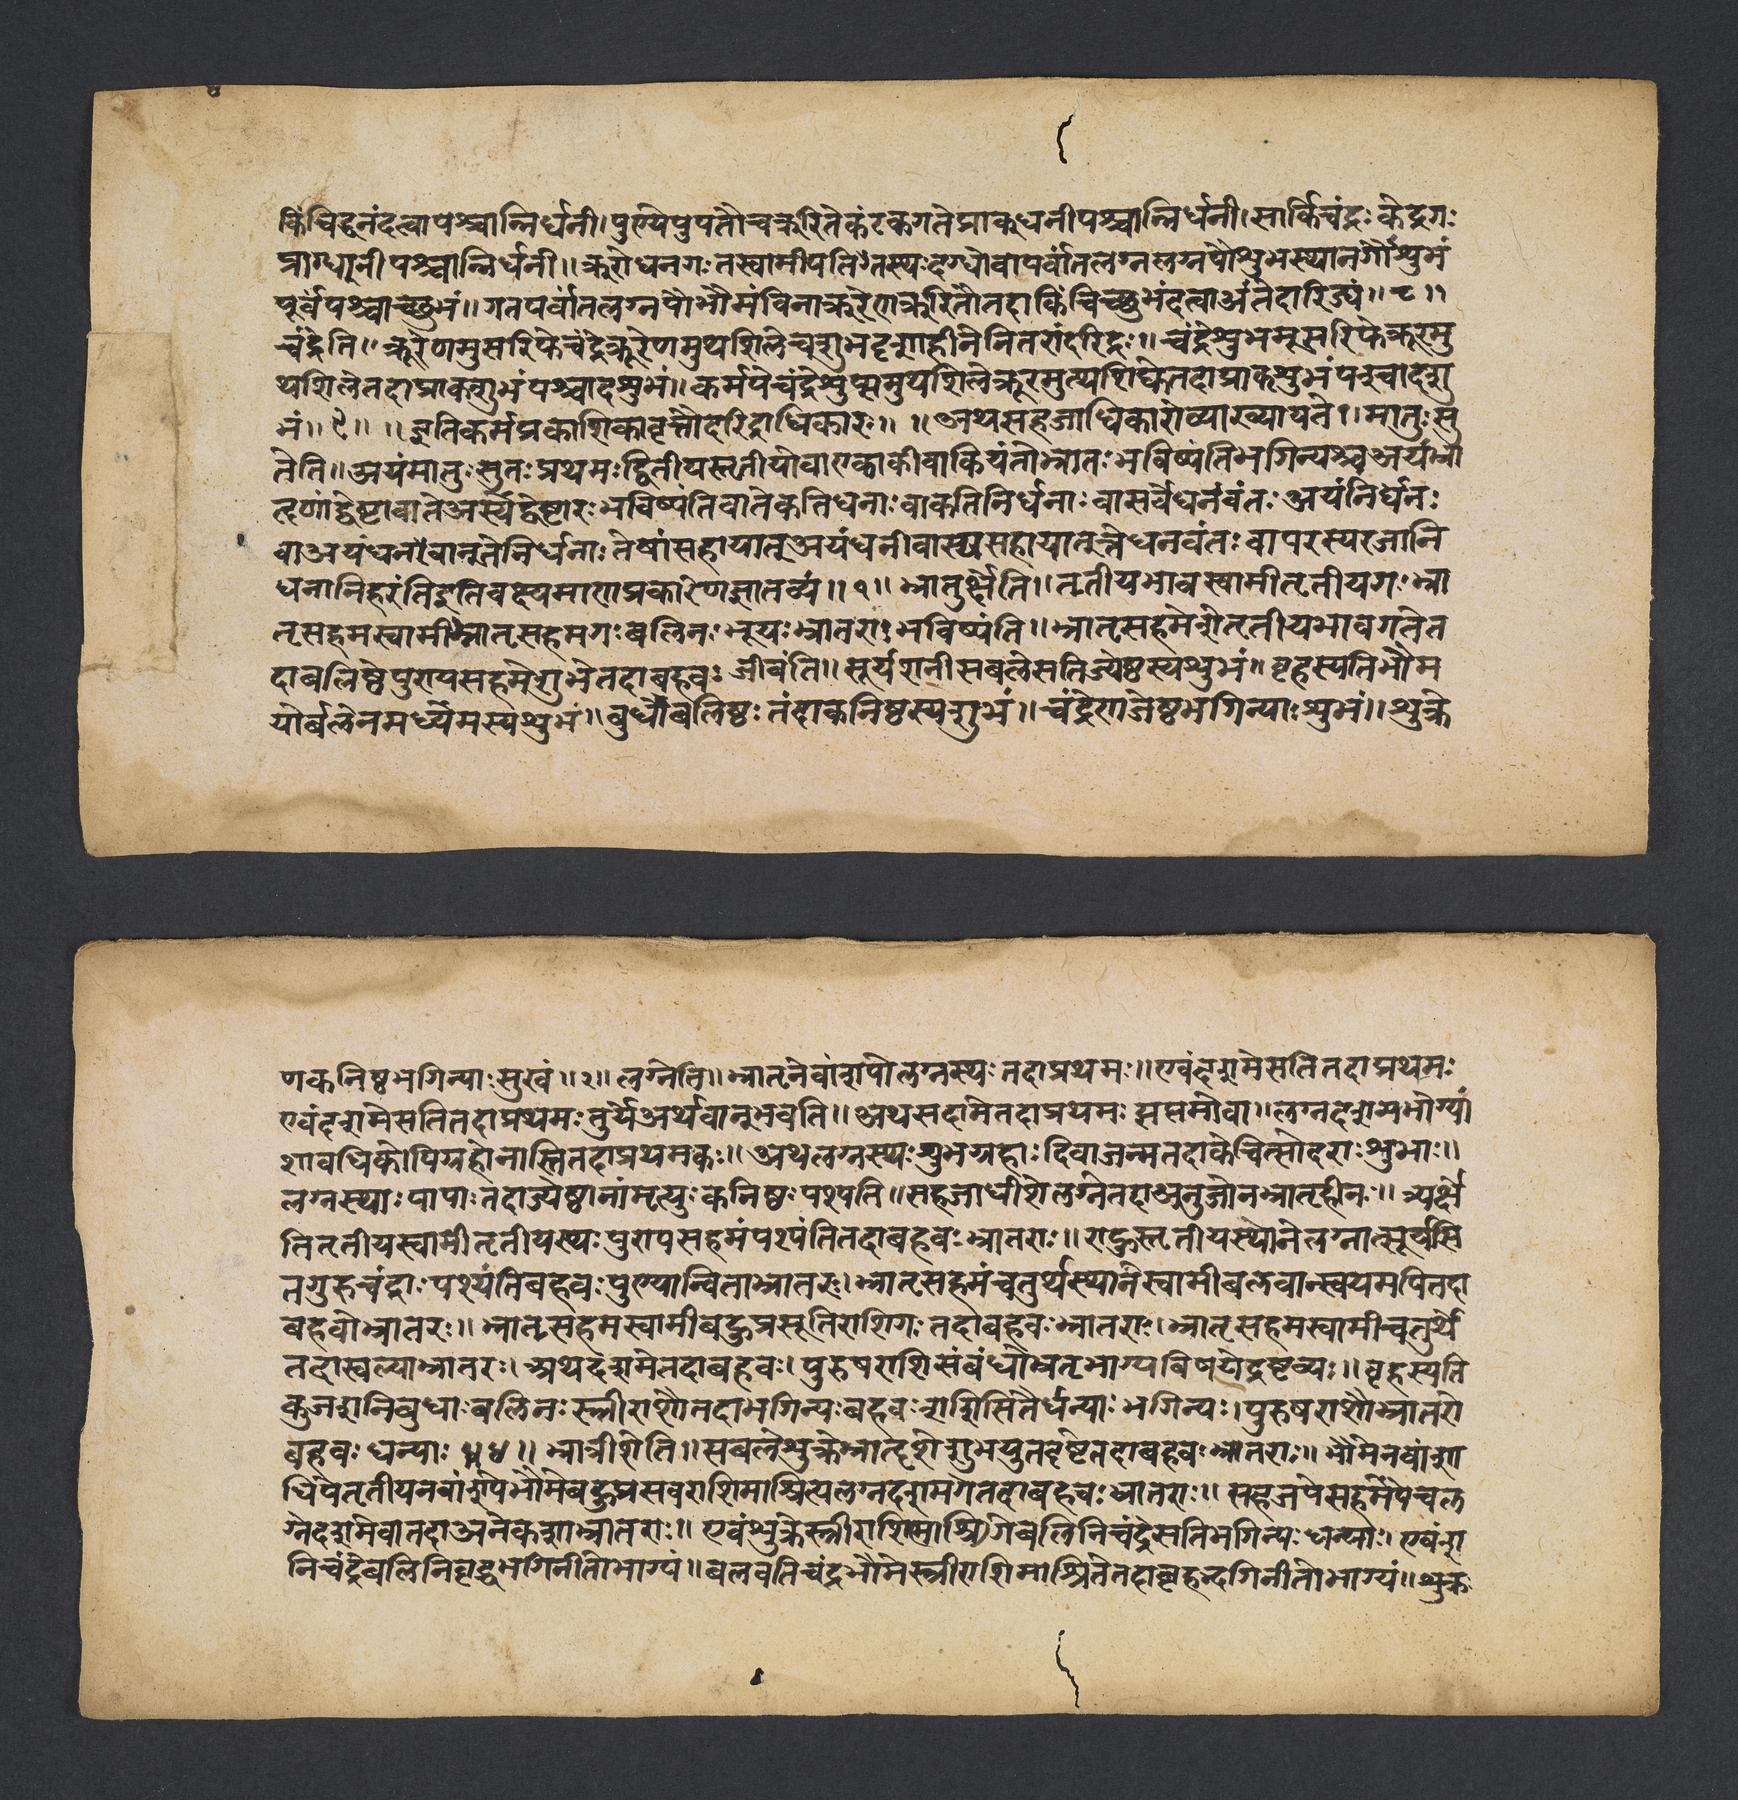 किंचिद्धनंदत्वापश्चान्निर्धनी।पुण्येपुपतौचक्रूरितेकंटकगतेप्राक्धनीपश्चान्निर्धनी।सार्किचंद्रःकेद्रगः
प्राग्धानीपश्चान्निर्धनी॥क्रूरोधनगःतस्वामीपतितस्यःदग्धोवापर्वातलग्नलग्नपौशुभस्थानगौशुभं
पूर्वेपश्चाच्छुभं॥गतपर्वातलग्नपौभौमंविनाक्रूरेणक्रूरितौतदाकिंचिच्छुभंदत्वाअंतेदारिद्र्यं॥८॥
चंद्रेति॥क्रूरेणमुसरिफेचंद्रेक्रूरेणमुथशिलेचशुभदृशाहीनेनितरांदरिद्रः॥चंद्रेशुभमूसरिफेक्रूरमु
थशिलेतदाप्राक्शुभंपश्चादशुभं॥कर्मपेचंद्रेशुभमुथशिलेक्रूरमुत्थशिलेतदाप्राक्शुभंपश्चादशु
भं॥९॥ ॥इतिकर्मप्रकाशिकावृत्तौदारिद्राधिकारः॥ ॥अथसहजाधिकारोव्याख्यायते॥मातुःसु
तेति॥अयंमातुःसुतःप्रथमःद्वितीयस्तृतीयोवाएकाकीवाकियंतोभ्रातःभविष्यंतिभगिन्यश्चअयंभ्रा
तृणांद्वेष्टावातेअस्यद्वेष्टारःभविष्यंतिवातेकतिधनाःवाकतिनिर्धनाःवासर्वेधनवंतःअयंनिर्धनः
वाअयंधनीवानुतेनिर्धनाःतेषांसहायात्अयंधनीवास्यसहायात्तेधनवंतःवापरस्परजानि
धनानिहरंतिइतिवक्ष्यमाणप्रकारेणज्ञातव्यं॥१॥भ्रातुर्भ्येति॥तृतीयभावस्वामीतृतीयगःभ्रा
तृसहमस्वामीभ्रातृसहमगःबलिनःभूयःभ्रातराःभविष्यंति॥भ्रातृसहमेशेतृतीयभावगतेत
दाबलिष्ठेपुण्यसहमेशुभेतदाबहवःजीवंति॥सूर्यशनीसबलेसतिज्येष्ठस्यशुभं॥बृहस्पतिभौम
योर्बलेनमध्येमस्यशुभं॥बुधोबलिष्ठःतंदाकनिष्ठस्यशुभं॥चंद्रेणजेष्ठभगिन्याःशुभं॥शुक्रे
णकनिष्ठभगिन्याःसुखं॥२॥लग्नेति॥भ्रातृनेवांशपोलग्नस्यःतदाप्रथमः॥एवंदशमेसतितदाप्रथमः
एवंदशमेसतितदाप्रथमःतुर्येअर्थवानुभवति॥अथसदामेतदाप्रथमःसप्तमोवा॥लग्नदशमभोग्यां
शावधिकोपिग्रहोनास्तितदाप्रथमकः॥अथलग्नस्यःशुभग्रहाःदिवाजन्मतदाकेचित्सोदराःशुभाः॥
लग्नस्थाःपापाःतदाज्येष्ठानांमृत्युःकनिष्ठःपश्यति॥सहजाधीशेलग्नेतदाअनुजोनभ्रातृहीनः॥त्र्यर्क्षे
तितृतीयस्वामीतृतीयस्यःपुण्यसहमंपश्यंतितदाबहवःभ्रातराः॥राहुस्तृतीयस्थानेलग्नात्सूर्यसि
तगुरुचंद्राःपश्यंतिबहवःपुण्यान्विताभ्रातरः।भ्रातृसहमंचतुर्थस्थानंस्वामीबलवान्स्वयमपितदा
बहवोभ्रातरः॥भ्रातृसहमस्वामीबहुप्रसूतिराशिगःतदाबहवःभ्रातराः।भ्रातृसहमस्वामीचतुर्थे
तदास्वल्पाभ्रातरः।अथदशमेतदाबहवः।पुरुषराशिसंबंधोभ्रतृभाग्यविषयेद्रष्टव्यः॥बृहस्पति
कुजशनिबुधाःबलिनःस्त्रीराशौतदाभगिन्यःबहवःशशिसितैर्धन्याःभगिन्यः।पुरुषराशौभ्रातरो
बहवःधन्याः ४॥भ्रात्रीशेति॥सबलेशुक्रेभ्रातृशेशुभयुतदृष्टेतदाबहवःभ्रातराः॥भौमेनवांशा
धिपेतृतीयनवांशपेभौमेबहुप्रसवराशिमाश्रित्यलग्नदशमगेतदाबहवःभ्रातराः॥सहजपेसहमेपेचल
ग्नेदशमेवातदाअनेकशाभ्रातराः॥एवंशुक्रेस्त्रीराशिमाश्रिगेबलिनिचंद्रेसतिभगिन्यःधन्याः।एवंश
निचंद्रेबलिनिवृद्धभगिनीतोभाग्यं॥बलवतिचंद्रभौमेस्त्रीराशिमाश्रितेतदाबृहन्दगिनीतोभाग्यं॥शुक्र